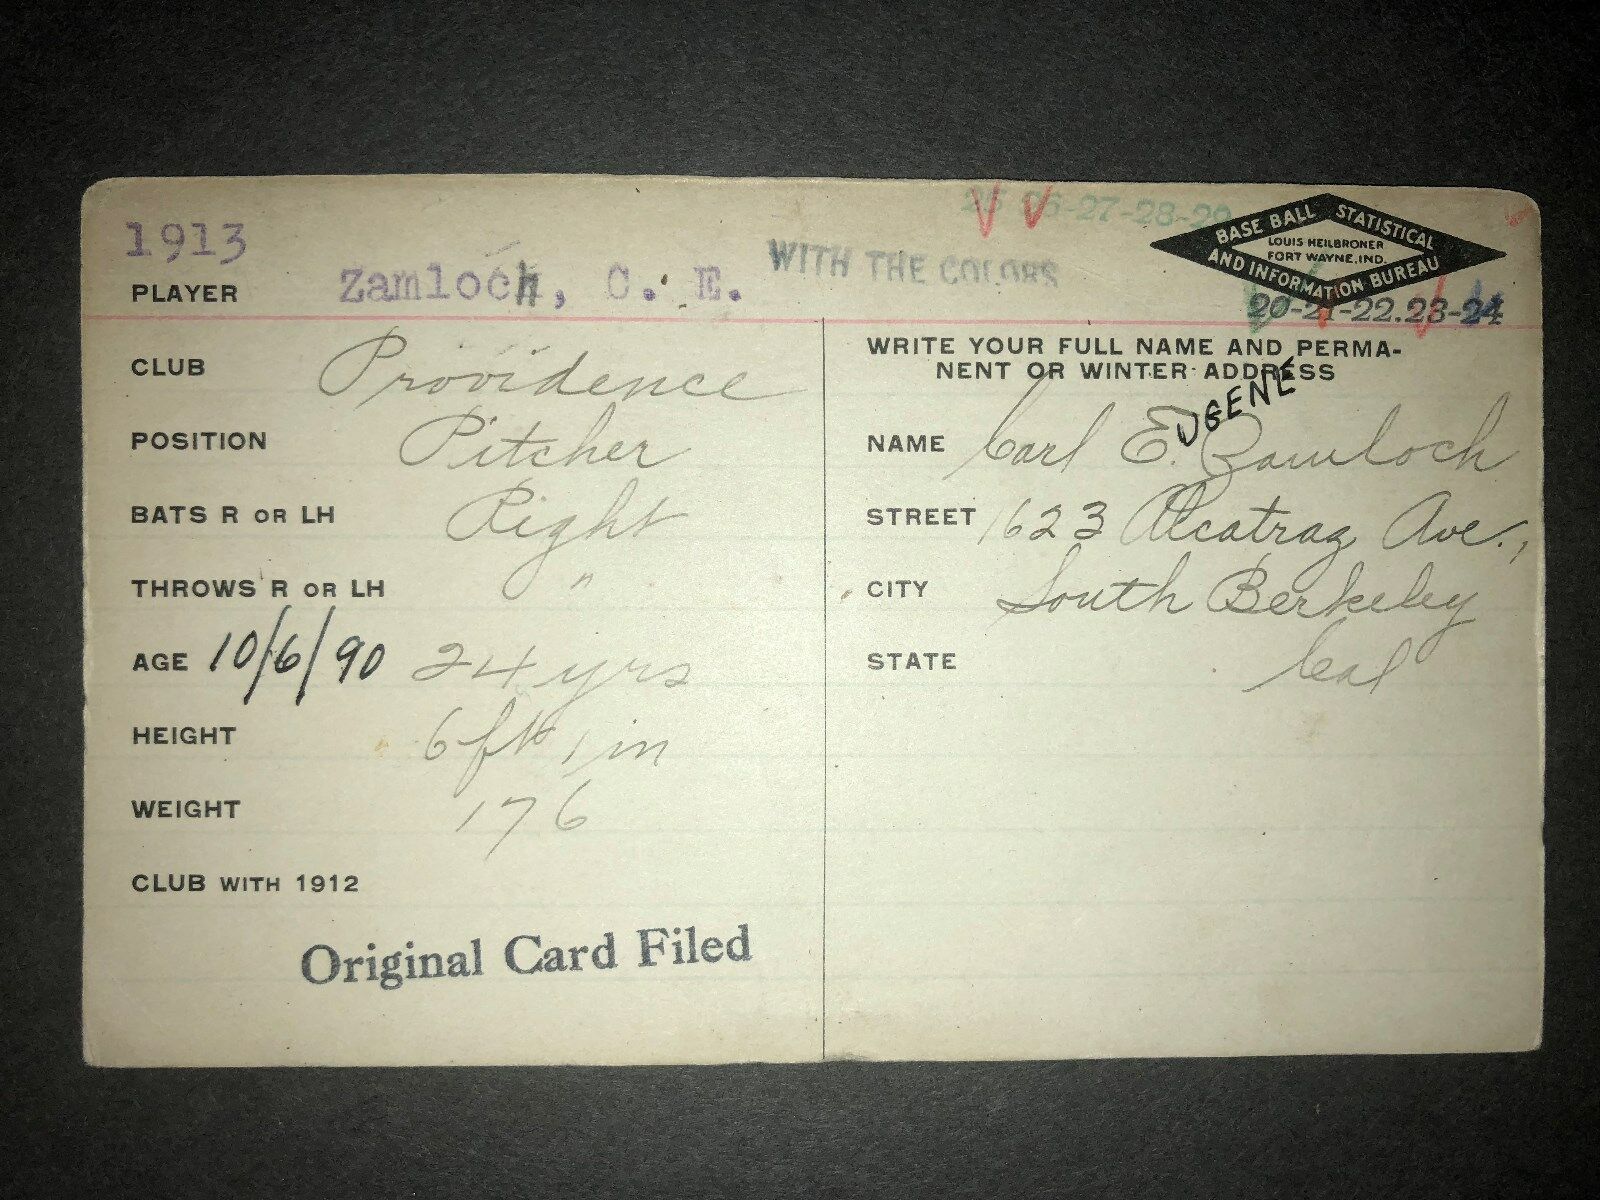 1913
25 26-27-28-29
BASE BALL STATISTICAL
LOUIS HEILBRONER
FORT WAYNE, IND.
AND INFORMATION BUREAU
PLAYER Zamloch, C. E. WITH THE COLORS
20-21-22.23-24
CLUB Providence
POSITION Pitcher
BATS R OR LH Right
THROWS R OR LH "
AGE 10/6/90 24 yrs
HEIGHT 6 ft 1 in
WEIGHT 176
CLUB WITH 1912
Original Card Filed
WRITE YOUR FULL NAME AND PERMA-
NENT OR WINTER ADDRESS
UGENE
NAME Carl E. Zamloch
STREET 1623 Alcatraz Ave.,
CITY South Berkeley
STATE Cal